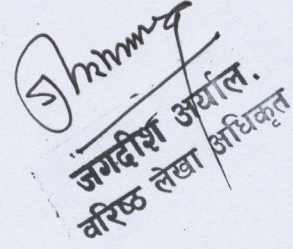 जगदीश अर्याल.
वरिष्ठ लेखा अधिकृत